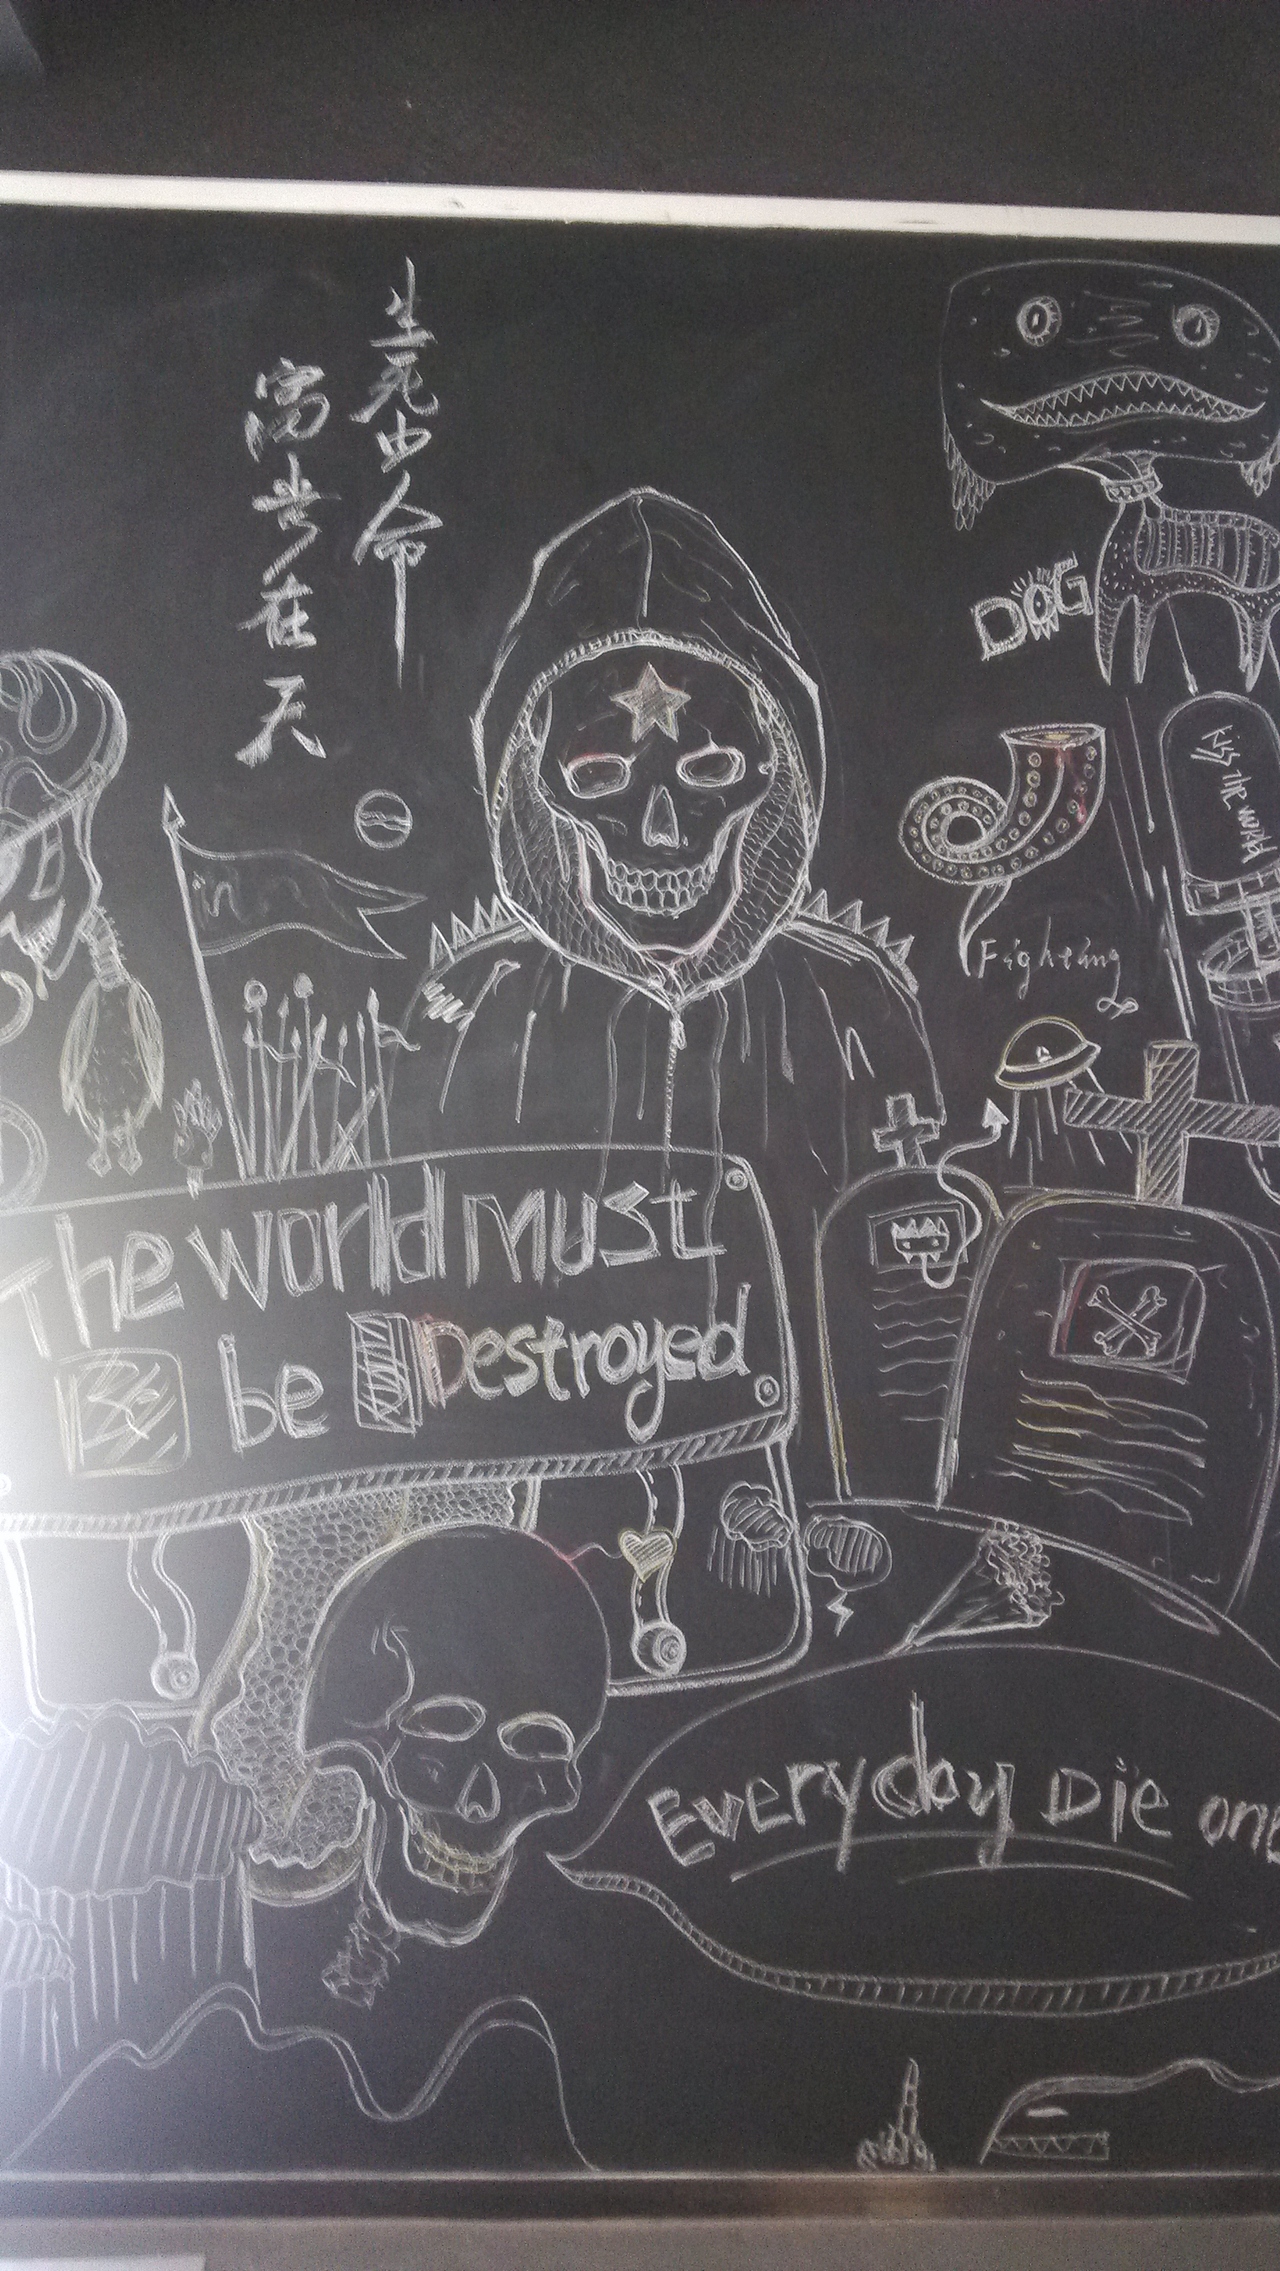 生死由命
富贵在天
DOG
Kiss the world
Fighting
in
The world Must
be Destroyed
Everyday Die one